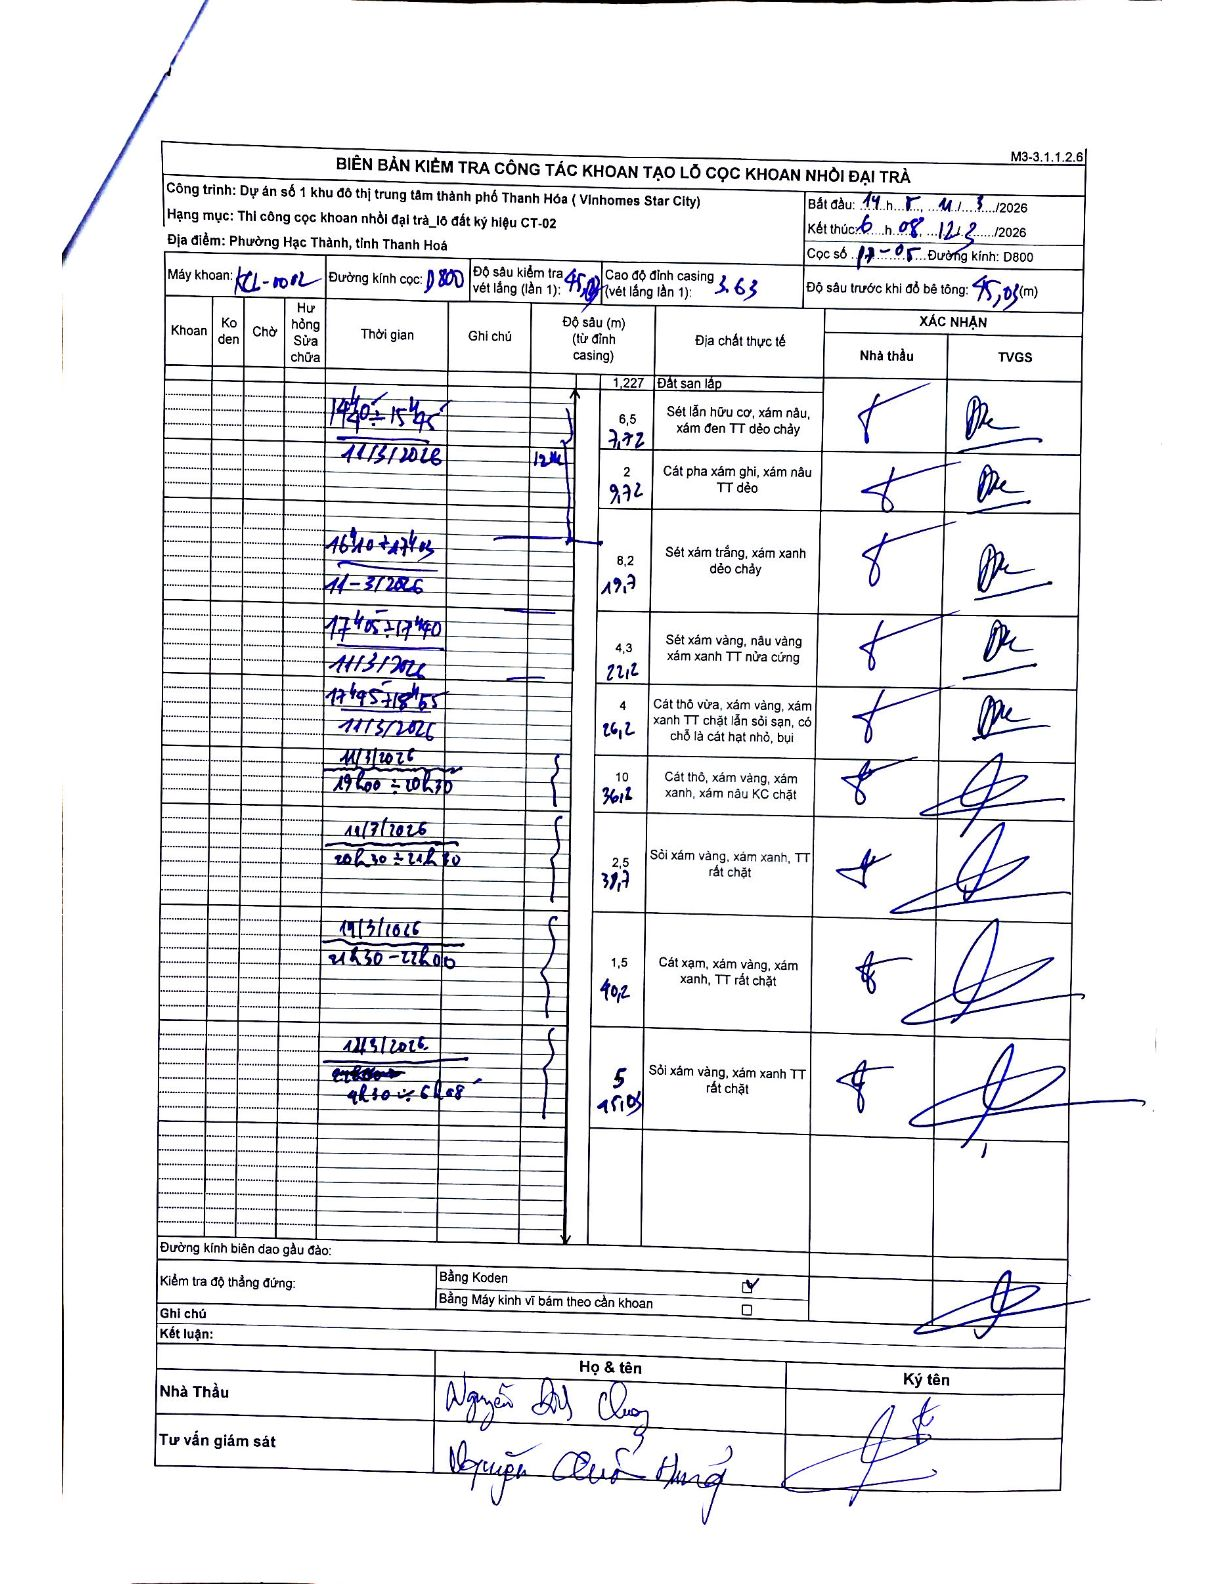 M3-3.1.1.2.6
BIÊN BẢN KIỂM TRA CÔNG TÁC KHOAN TẠO LỖ CỌC KHOAN NHỒI ĐẠI TRÀ
Công trình: Dự án số 1 khu đô thị trung tâm thành phố Thanh Hóa ( Vinhomes Star City)
Hạng mục: Thi công cọc khoan nhồi đại trà_lô đất ký hiệu CT-02
Địa điểm: Phường Hạc Thành, tỉnh Thanh Hoá
Bắt đầu: 14 h 5, 11/ 3 /2026
Kết thúc: 6 h 08, 12/3 /2026
Cọc số 17-05 Đường kính: D800
Máy khoan: KCL-0002
Đường kính cọc: D800
Độ sâu kiểm tra vét lắng (lần 1): 45,03
Cao độ đỉnh casing (vét lắng lần 1): 3.63
Độ sâu trước khi đổ bê tông: 45,03 (m)
Khoan
Ko đen
Chờ
Hư hỏng Sửa chữa
Thời gian
Ghi chú
Độ sâu (m) (từ đỉnh casing)
Địa chất thực tế
XÁC NHẬN
Nhà thầu
TVGS
1,227 Đất san lấp
14h40 ÷ 15h45
11/3/2026
12m
6,5
7,72
Sét lẫn hữu cơ, xám nâu,
xám đen TT dẻo chảy
2
9,72
Cát pha xám ghi, xám nâu
TT dẻo
16h10 ÷ 17h03
11-3/2026
8,2
19,7
Sét xám trắng, xám xanh
dẻo chảy
17h05 ÷ 17h40
11/3/2026
4,3
22,2
Sét xám vàng, nâu vàng
xám xanh TT nửa cứng
17h45 ÷ 18h55
11/3/2026
4
26,2
Cát thô vừa, xám vàng, xám
xanh TT chặt lẫn sỏi sạn, có
chỗ là cát hạt nhỏ, bụi
11/3/2026
19h00 ÷ 20h30
10
36,2
Cát thô, xám vàng, xám
xanh, xám nâu KC chặt
11/3/2026
20h30 ÷ 21h30
2,5
38,7
Sỏi xám vàng, xám xanh, TT
rất chặt
11/3/2026
21h30 - 22h00
1,5
40,2
Cát xạm, xám vàng, xám
xanh, TT rất chặt
12/3/2026
4h30 ÷ 6h08
5
45,03
Sỏi xám vàng, xám xanh TT
rất chặt
Đường kính biên dao gầu đào:
Kiểm tra độ thẳng đứng:
Bằng Koden
Bằng Máy kinh vĩ bám theo cần khoan
Ghi chú
Kết luận:
Họ & tên
Ký tên
Nhà Thầu
Nguyễn
Tư vấn giám sát
Nguyễn